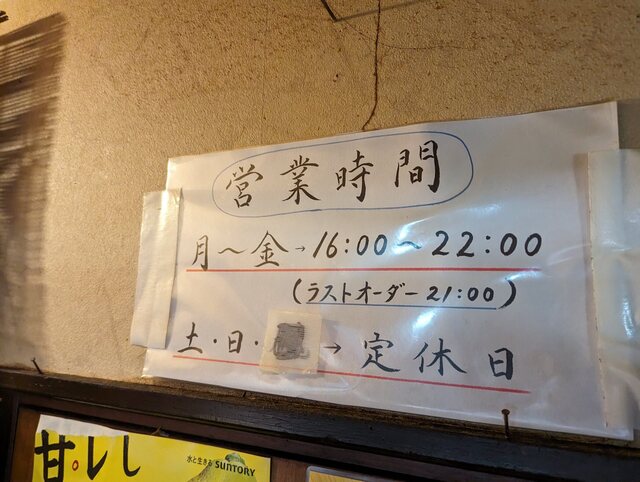 営業時間
月〜金→16:00〜22:00
(ラストオーダー21:00)
土・日・→定休日
水と生きる SUNTORY